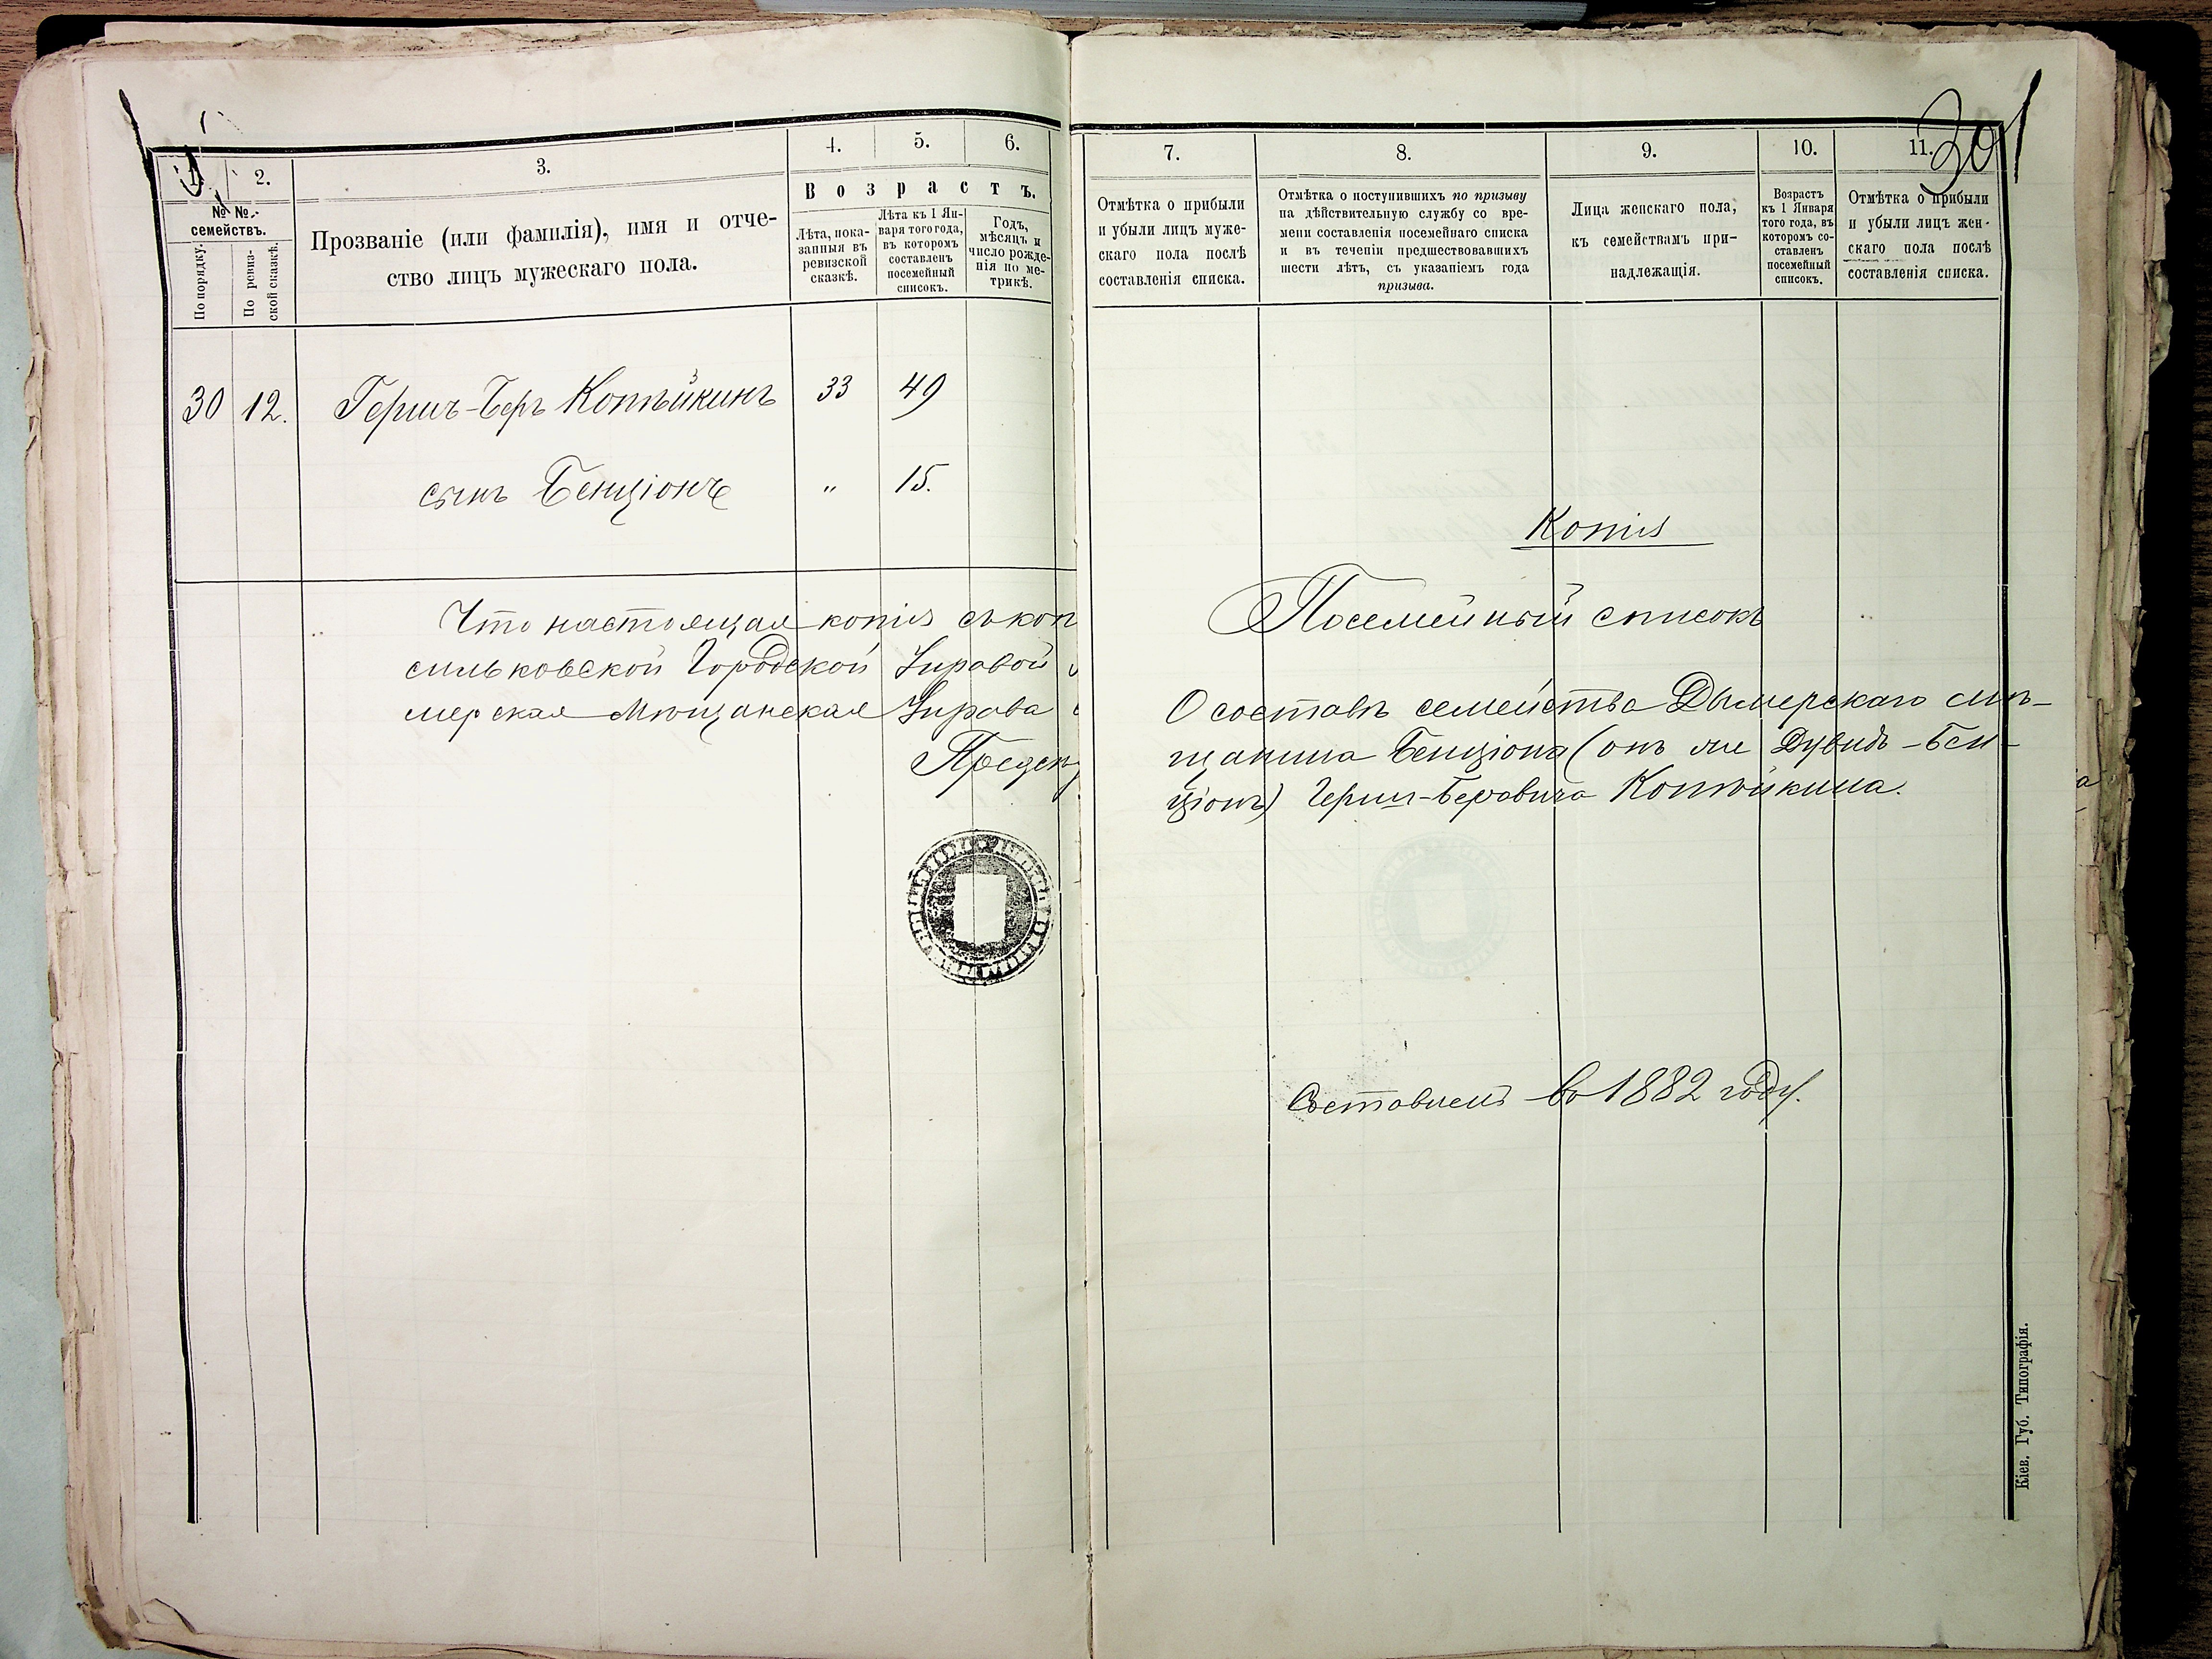 1. 2. 3. 4. 5. 6.
№ № семействъ.
По порядку.
По ревиз-
ской сказкѣ.
Прозваніе (или фамилія), имя и отче-
ство лицъ мужескаго пола.
Возрастъ.
Лѣта, пока-
занныя въ
ревизской
сказкѣ.
Лѣта къ 1 Ян-
варя того года,
въ которомъ
составленъ
посемейный
списокъ.
Годъ,
мѣсяцъ и
число рожде-
нія по ме-
трикѣ.
30 12. Гершъ-Беръ Копѣйкинъ 33 49
сынъ Бенціонъ " 15.
Что настоящая копія съ коп
сильковской Городской Управой
мерская Мѣщанская Управа
30
7. 8. 9. 10. 11.
Отмѣтка о прибыли
и убыли лицъ муже-
скаго пола послѣ
составленія списка.
Отмѣтка о поступившихъ по призыву
на дѣйствительную службу со вре-
мени составленія посемейнаго списка
и въ теченіи предшествовавшихъ
шести лѣтъ, съ указаніемъ года
призыва.
Лица женскаго пола,
къ семействамъ при-
надлежащія.
Возрастъ
къ 1 Января
того года, въ
которомъ со-
ставленъ
посемейный
списокъ.
Отмѣтка о прибыли
и убыли лицъ жен-
скаго пола послѣ
составленія списка.
Копія
Посемейный списокъ
О составѣ семейства Дымерскаго мѣ-
щанина Бенціона (онъ же Дувидъ-Бен-
ціонъ) Гершъ-Беровича Копѣйкина.
Составленъ въ 1882 году.
Кіев. Губ. Типографія.